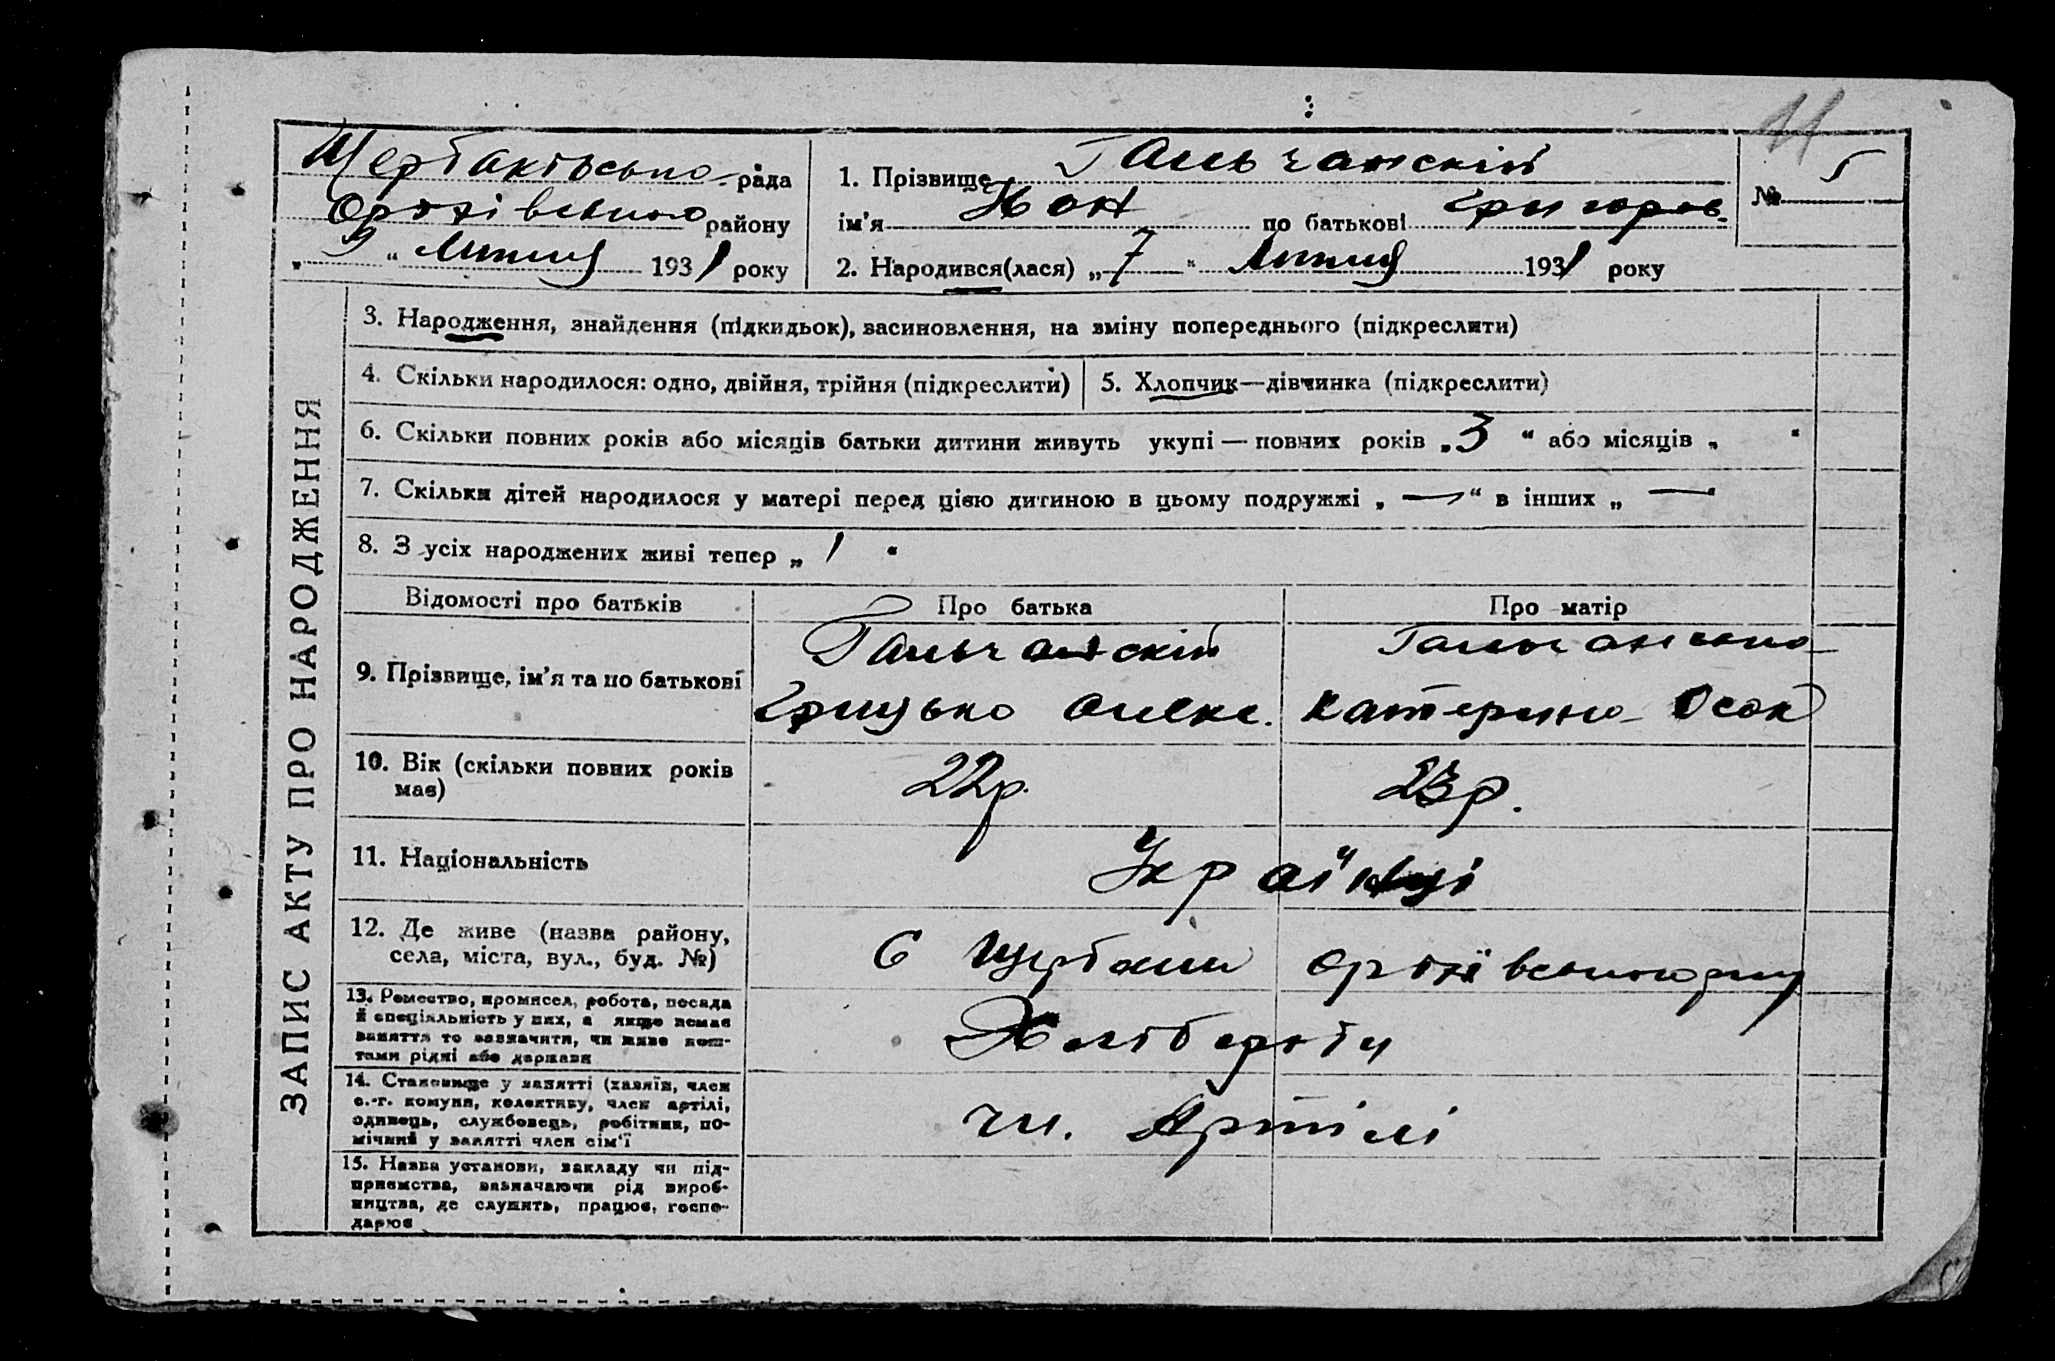 11
Щербаківська рада
Оріхівського району
„ 9 “ Липня 1931 року
1. Прізвище Гальчанскій
ім’я по батькові Григоров.
2. Народився(лася) „ 7 “ Липня 1931 року
№ 5
ЗАПИС АКТУ ПРО НАРОДЖЕННЯ
3. Народження, знайдення (підкидьок), засиновлення, на зміну попереднього (підкреслити)
4. Скільки народилося: одно, двійня, трійня (підкреслити)
5. Хлопчик—дівчинка (підкреслити)
6. Скільки повних років або місяців батьки дитини живуть укупі — повних років „ 3 “ або місяців „ “
7. Скільки дітей народилося у матері перед цією дитиною в цьому подружжі „ — “ в інших „ — “
8. З усіх народжених живі тепер „ 1 “
Відомості про батьків
Про батька
Про матір
9. Прізвище, ім’я та по батькові
Гальчанскій
Грицько Олекс.
Гальчанська
Катерина Осок
10. Вік (скільки повних років
має)
22 р.
23 р.
11. Національність
Українці
12. Де живе (назва району,
села, міста, вул., буд. №)
С Щербаки Оріхівського р-ну
13. Ремество, промисел, робота, посада
й спеціяльність у них, а якщо немає
заняття то зазначити, чи живе кош-
тами рідні або держави
Хлібороби
14. Становище у занятті (хазяїн, член
с.-г. комуни, колективу, член артілі,
одинець, службовець, робітник, по-
мічний у занятті член сім’ї
чл. Артілі
15. Назва установи, закладу чи під-
приємства, зазначаючи рід вироб-
ництва, де служить, працює, госпо-
дарює